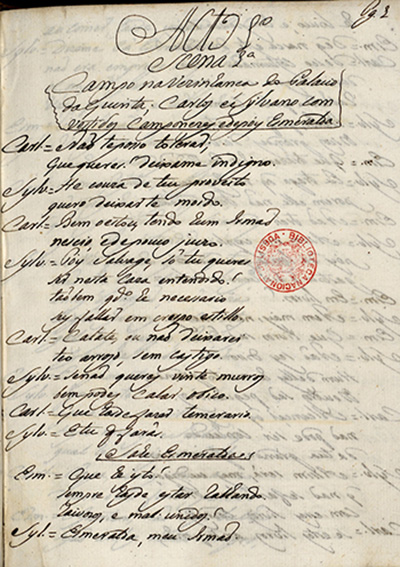 Pg. 1
Acto 1º
Scena 1ª
Campo na Vezinhança do Palacio
da Quinta, Carlos, e Sylvano com
Vestidos Camponezes, e depois Esmeralda
Carl. = Não te posso tolerar;
que queres? deixame indigno.
Sylv. = He couza de teu proveito
quero deixarte mordo.
Carl. = Bem estou, tendo hum Irmaõ
nescio, e de pouco juizo.
Sylv. = Foy selvage, so tu queres
ser nesta Caza entendido?
taõbem qdo. he necessario
sey fallar em crespo estillo.
Carl. = Calate, ou naõ deixarei
teo arrojo, sem castigo.
Sylv. = Senaõ queres vinte murros
bem podes Calar o bico.
Carl. = Que has de fazer temerario.
Sylv. = E tu q farás.
Sale Esmeralda
Esm. = Que he isto?
sempre haõ de estar ralhando
e mal unidos?
Syl. = Esmeralda, meu Irmaõ
LISBOA BIBLIOTECA NACIONAL